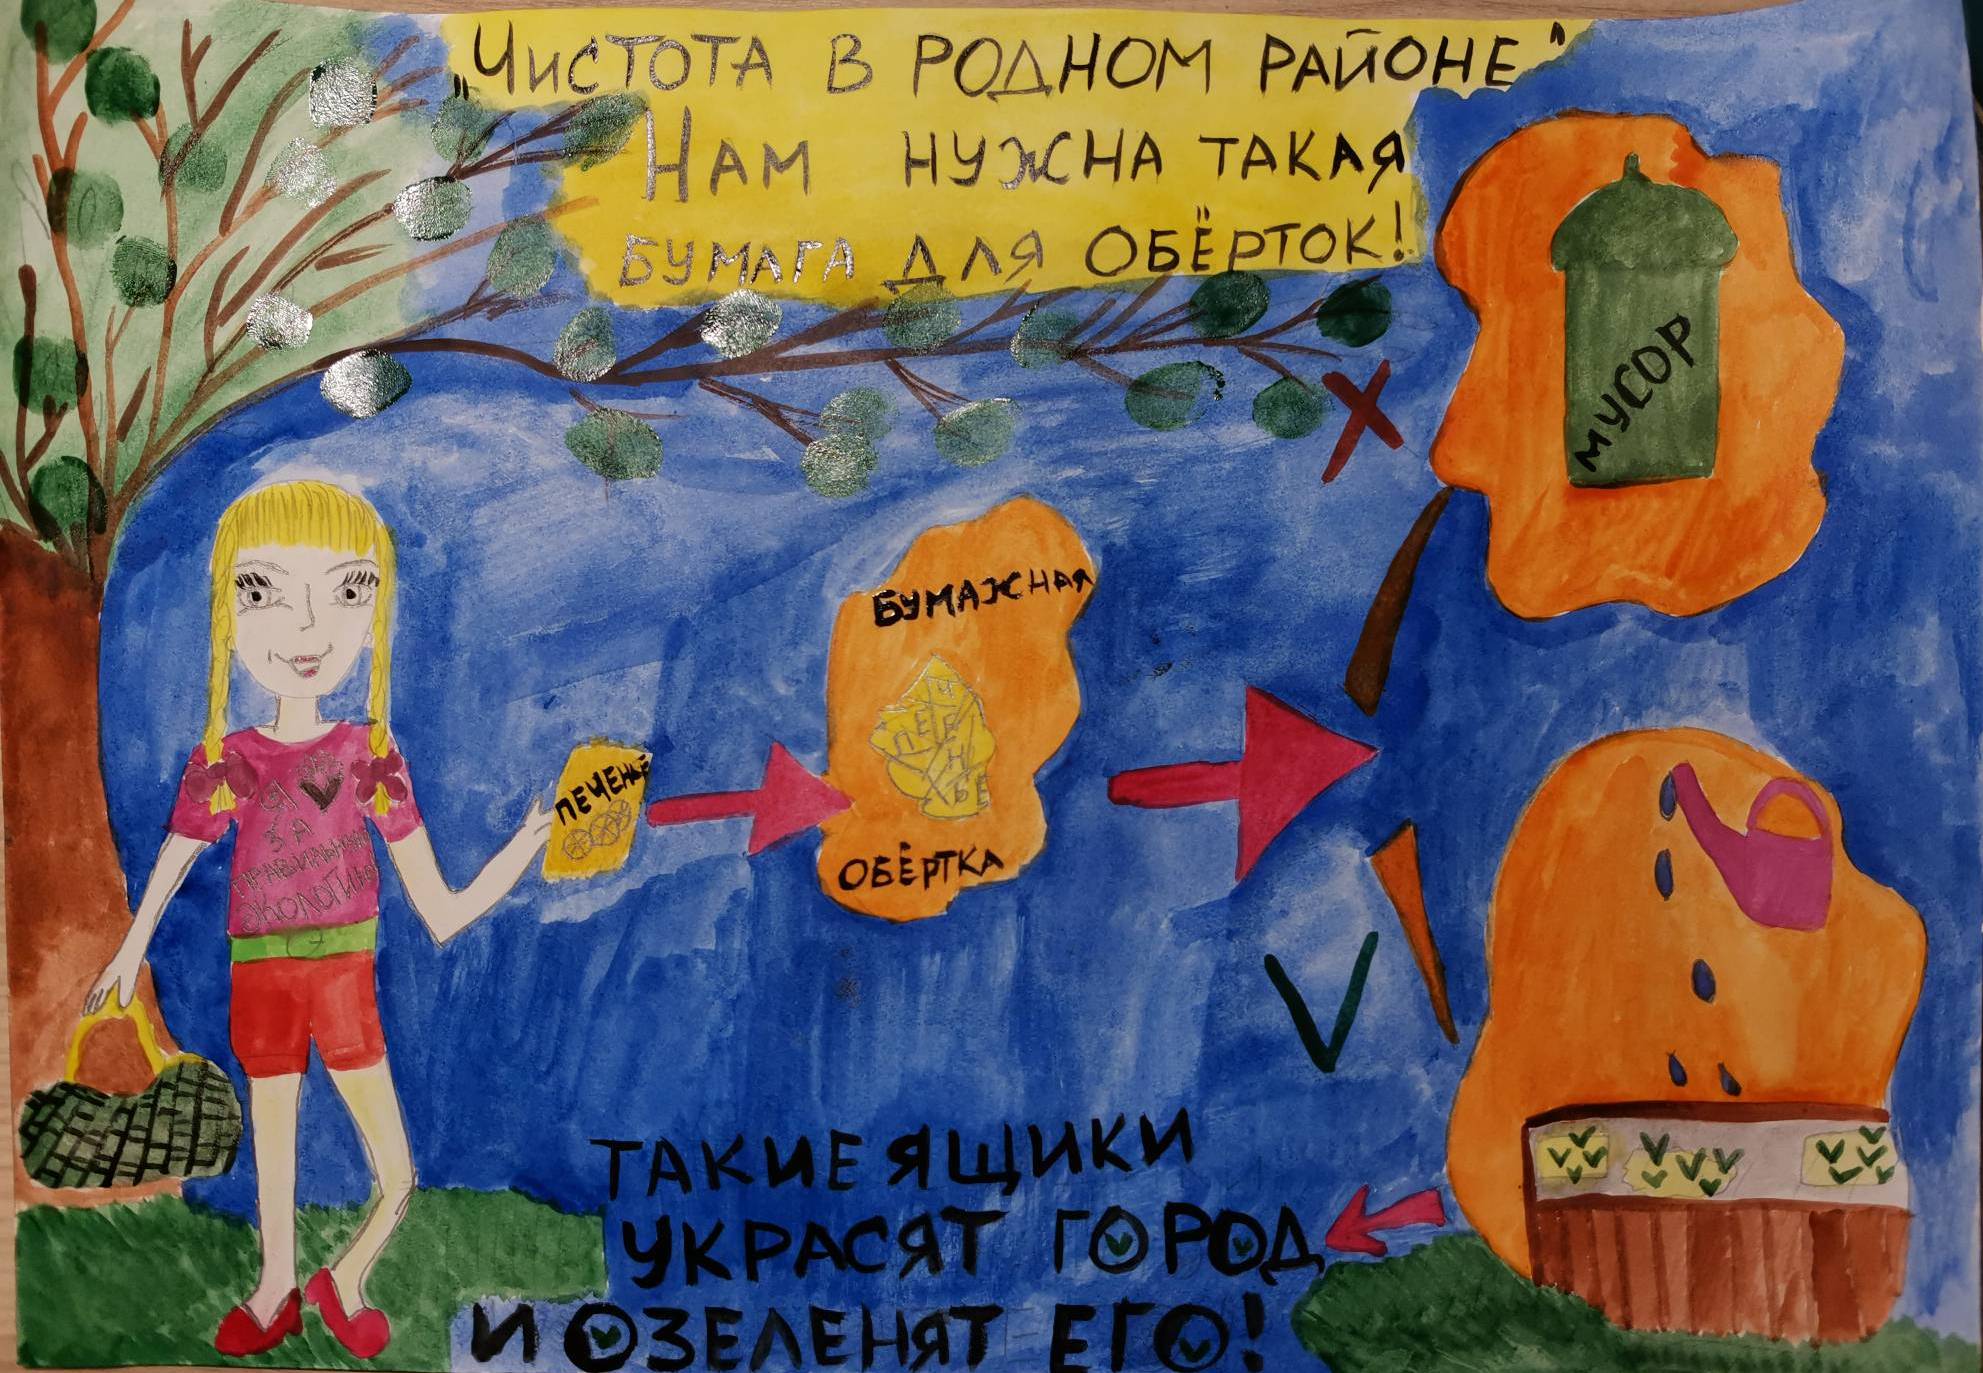 „Чистота в родном районе"
Нам нужна такая
бумага для обёрток!
МУСОР
БУМАЖНАЯ
ПЕЧЕНЬЕ
ОБЁРТКА
ПЕЧЕНЬЕ
Я
ЗА
ПРАВИЛЬНУЮ
ЭКОЛОГИЮ
ТАКИЕ ЯЩИКИ
УКРАСЯТ ГОРОД
И ОЗЕЛЕНЯТ ЕГО!